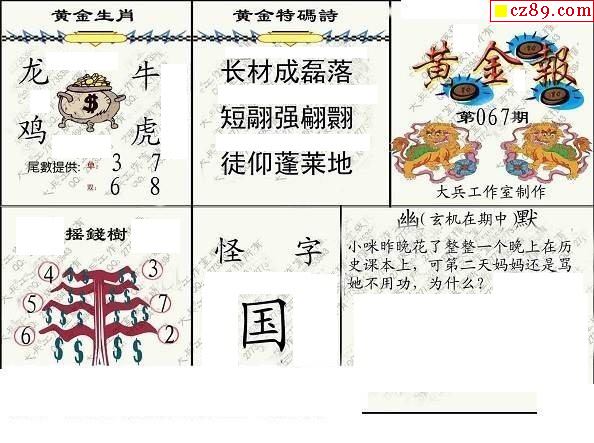 cz89.com
黄金生肖
龙 牛
鸡 虎
尾數提供: 单: 3 7
双: 6 8
黄金特碼詩
长材成磊落
短翮强翩翾
徒仰蓬莱地
黄金報
第067期
大兵工作室制作
摇錢樹
4 3
5 7
6 2
怪 字
国
幽(玄机在期中)默
小咪昨晚花了整整一个晚上在历
史课本上，可第二天妈妈还是骂
她不用功，为什么？